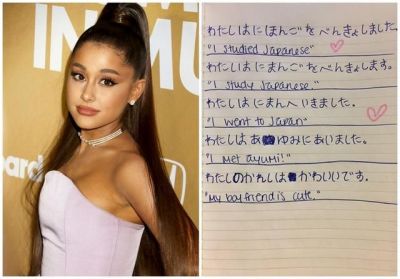 IN MU
board
わたしはにほんごをべんきょしました。
"I studied Japanese"
わたしはにまんごをべんきょします。
"I study Japanese."
わたしはにまんへいきました。
"I went to Japan"
わたしは あゆみにあいました。
"I met ayumi!"
わたしのかれしは かわいいです。
"My boyfriend is cute."